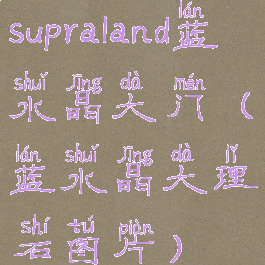 lán
supraland蓝
shuǐ jīng dà mén
水晶大门(
lán shuǐ jīng dà lǐ
蓝水晶大理
shí tú piàn
石图片)